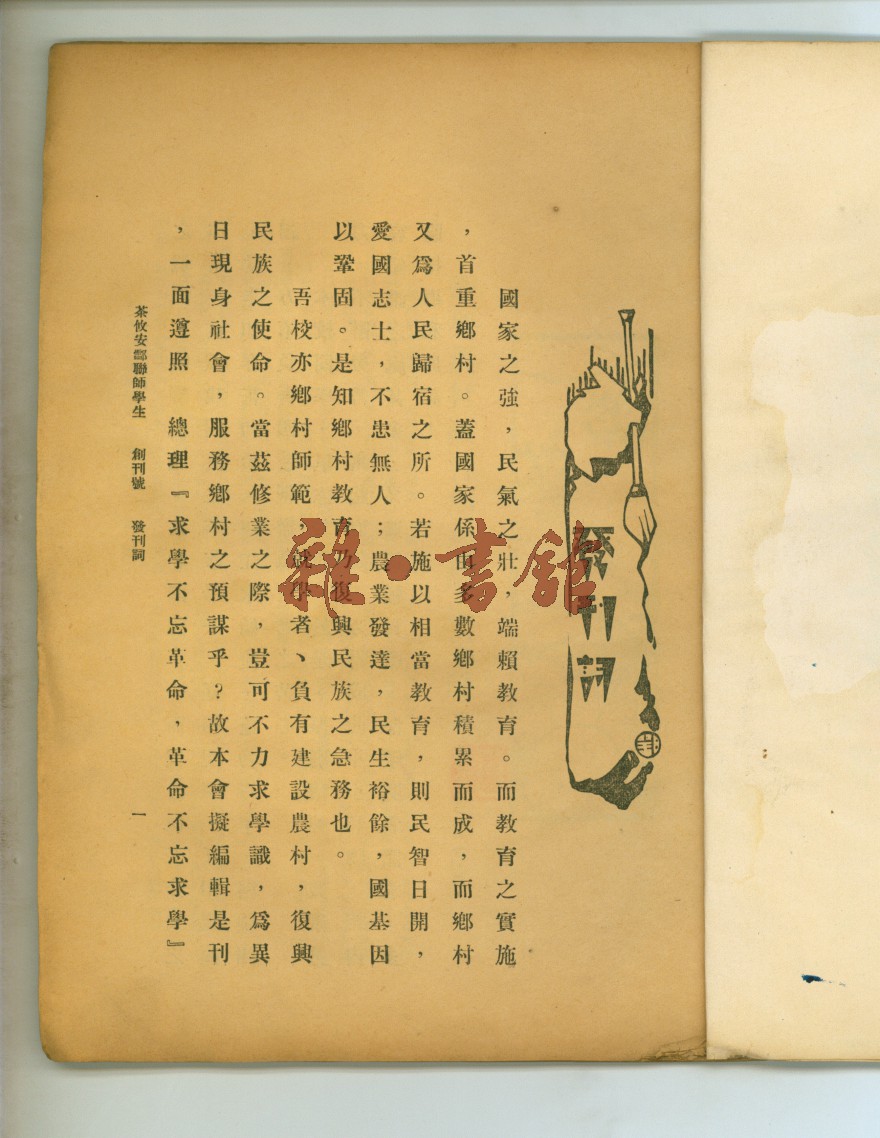 發刊詞
國家之強，民氣之壯，端賴教育。而教育之實施
，首重鄉村。蓋國家係由多數鄉村積累而成，而鄉村
又爲人民歸宿之所。若施以相當教育，則民智日開，
愛國志士，不患無人；農業發達，民生裕餘，國基因
以鞏固。是知鄉村教育乃復興民族之急務也。
吾校亦鄉村師範，就學者、負有建設農村，復興
民族之使命。當茲修業之際，豈可不力求學識，爲異
日現身社會，服務鄉村之預謀乎？故本會擬編輯是刊
，一面遵照　總理『求學不忘革命，革命不忘求學』
茶攸安酃聯師學生　創刊號　發刊詞　一
雜·書館